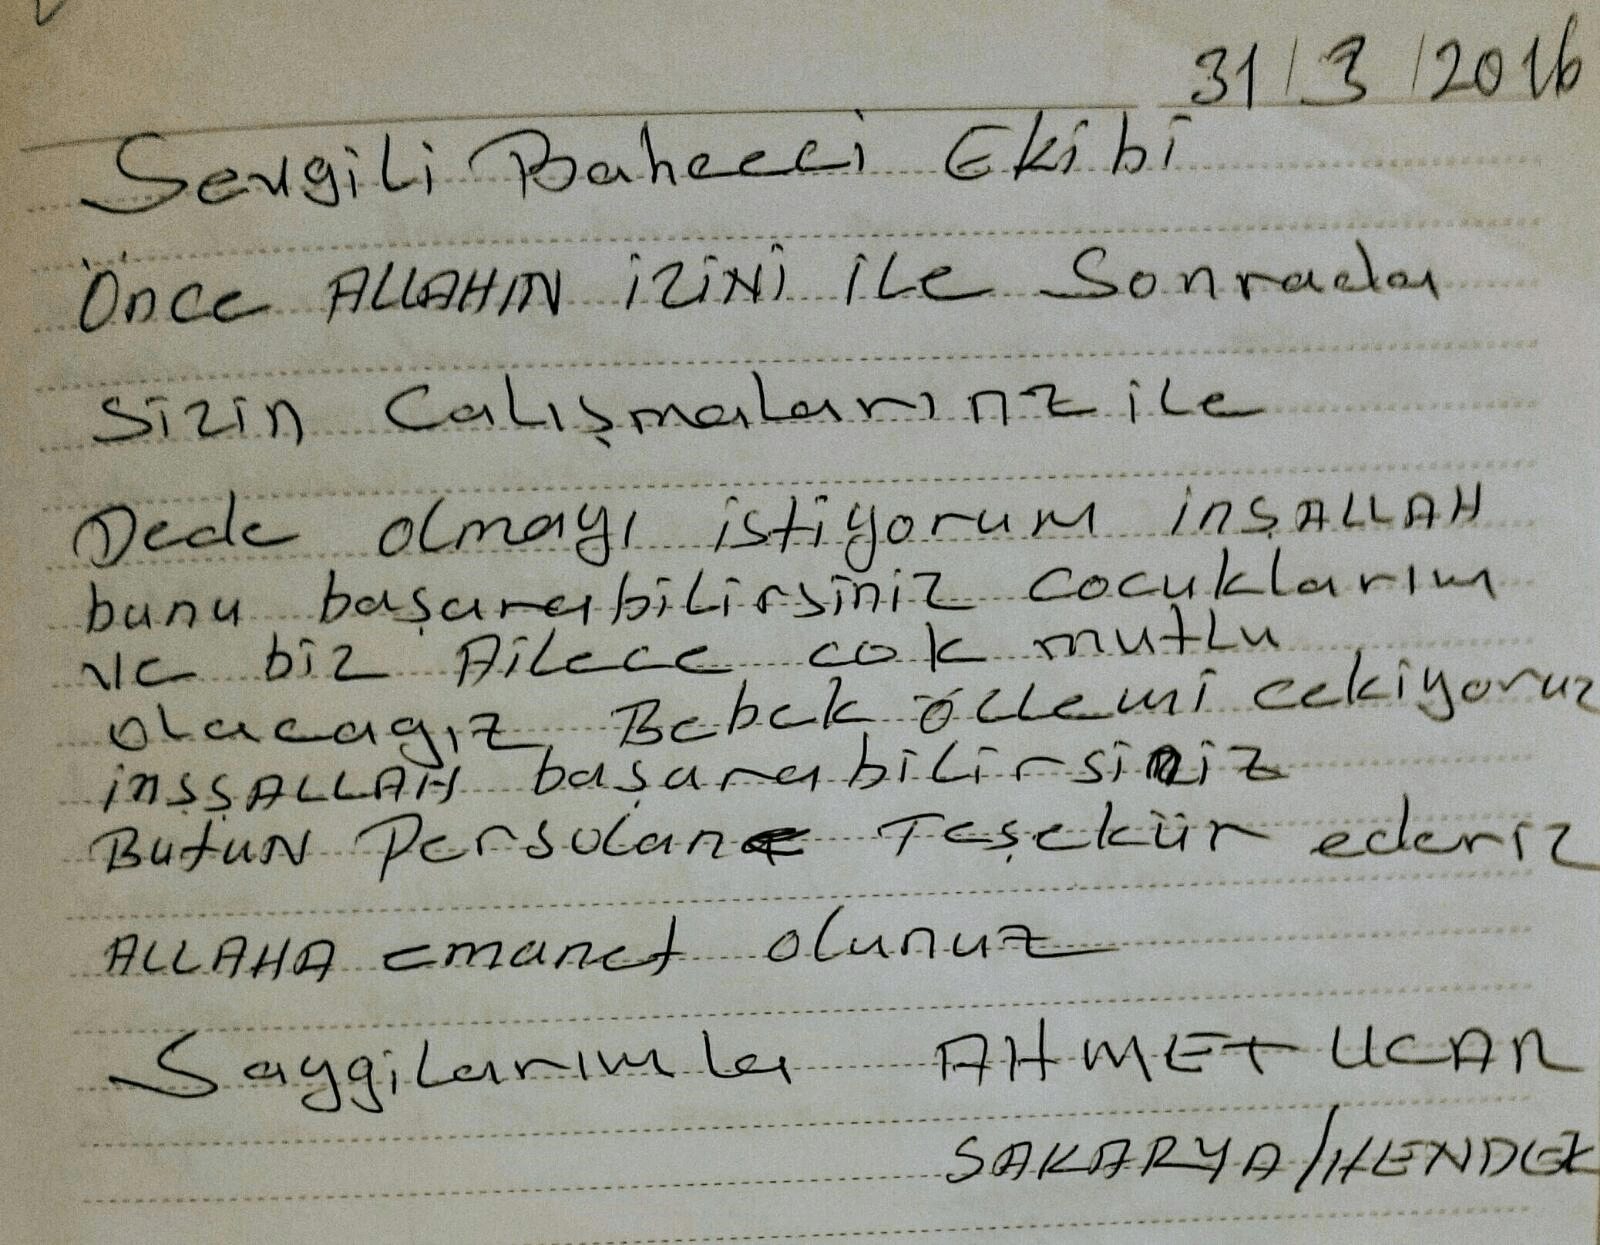 31/3/2016
Sevgili Bahceci Ekibi
Önce ALLAHIN iZiNi iLe Sonrada
Sizin Calışmalarınz ile
Dede olmayı istiyorum inşALLAH
bunu başarabilirsiniz cocuklarım
ve biz Ailece cok mutlu
olacagız Bebek özlemi cekiyoruz
inşşALLAH başarabilirsiniz
Butun Persolane Teşekür ederiz
ALLAHA emanet olunuz
Saygilarımla AHMET UCAR
SAKARYA/HENDEK